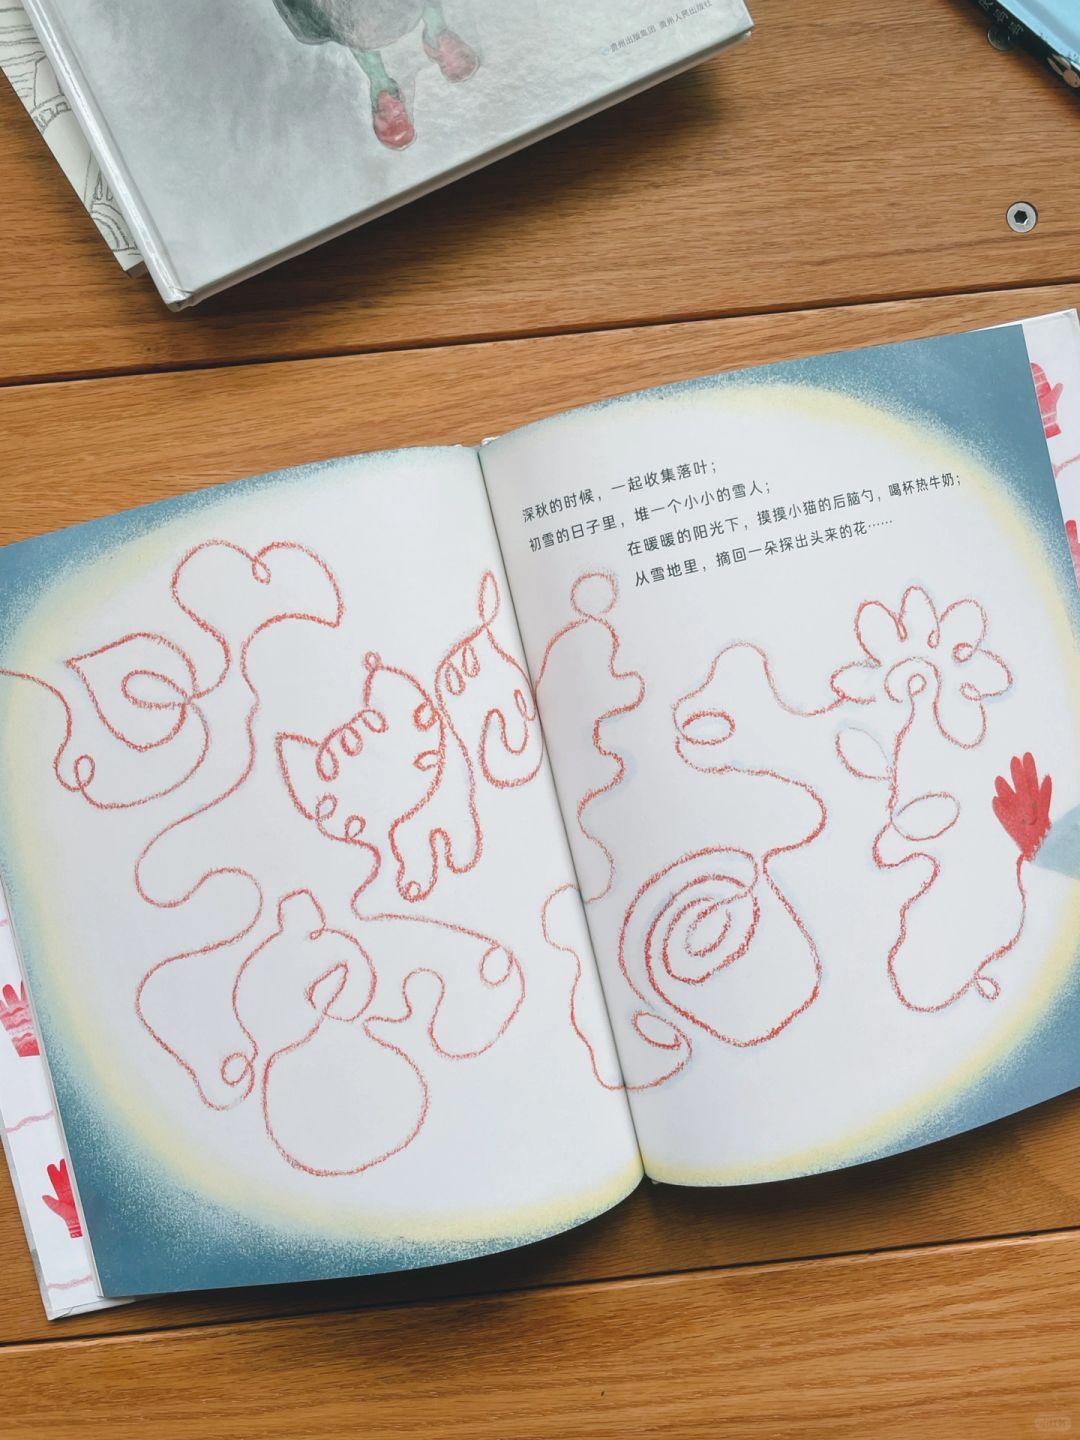 贵州出版集团 贵州人民出版社
深秋的时候，一起收集落叶；
初雪的日子里，堆一个小小的雪人；
在暖暖的阳光下，摸摸小猫的后脑勺，喝杯热牛奶；
从雪地里，摘回一朵探出头来的花……